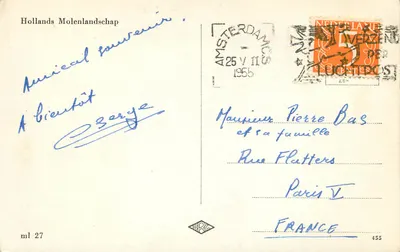 Hollands Molenlandschap
Amical souvenir.
A bientôt
Serge
AMSTERDAM CS
25 V II
1955
NEDERLAND
5
VERZEND
PER
LUCHTPOST
Monsieur Pierre Bas
et sa famille
Rue Flatters
Paris V
FRANCE
ml 27
455